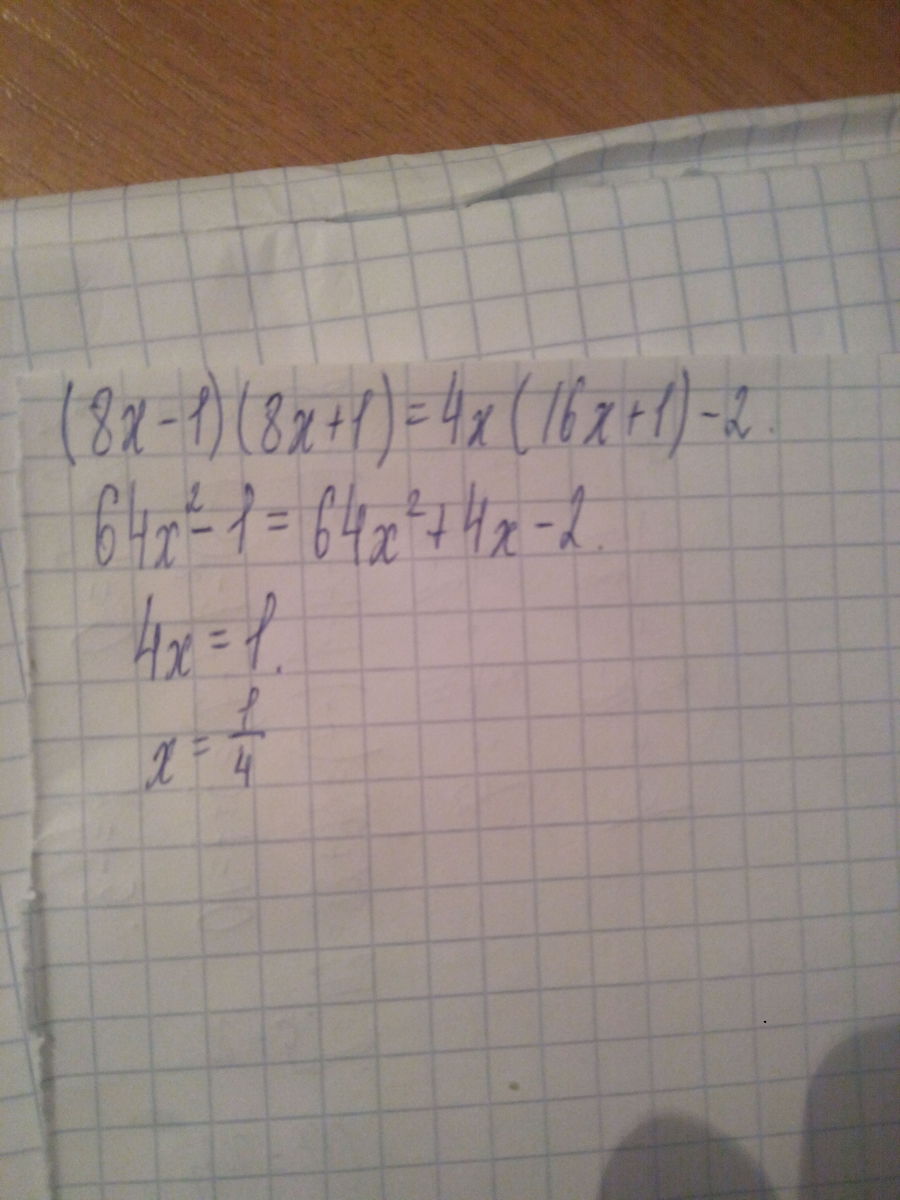 (8x-1)(8x+1)=4x(16x+1)-2.
64x²-1=64x²+4x-2.
4x=1.
x=1/4